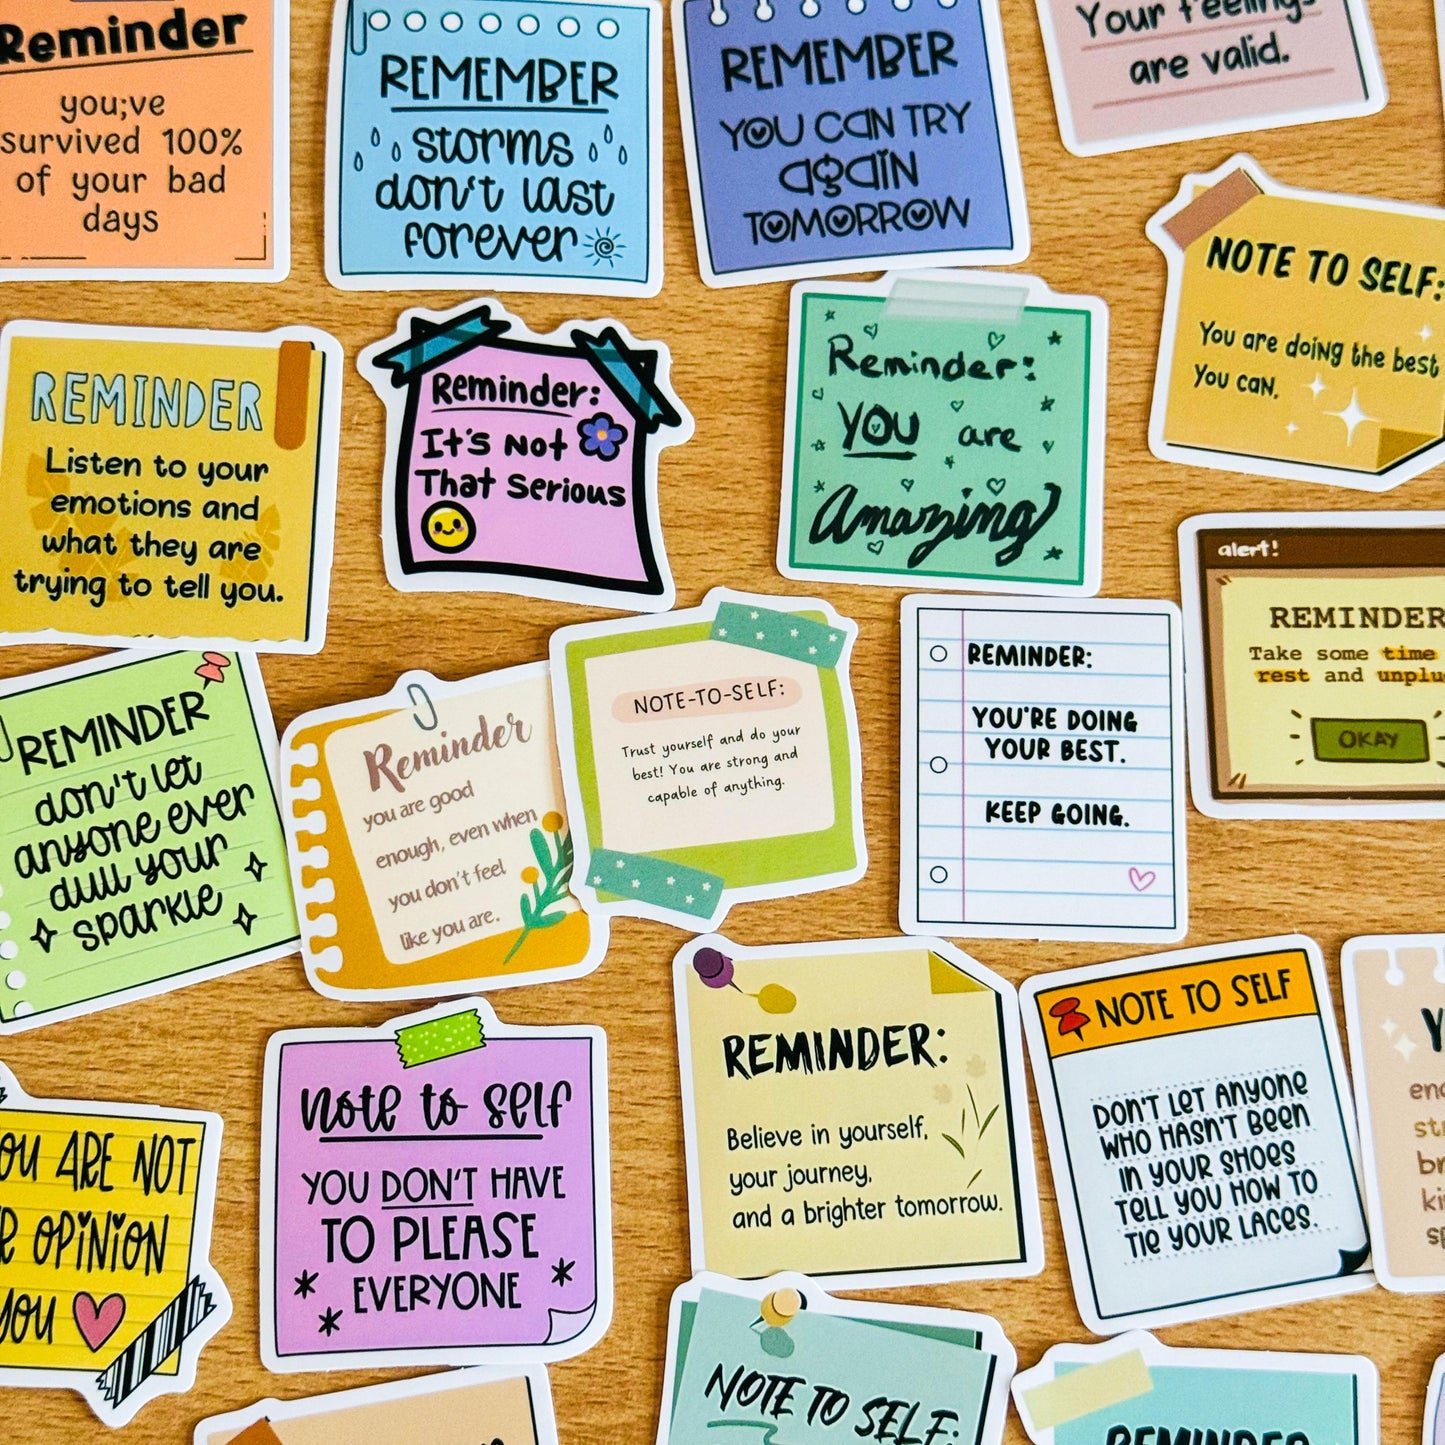 Reminder
you;ve
survived 100%
of your bad
days
REMEMBER
storms
don't last
forever
REMEMBER
YOU CAN TRY
AGAIN
TOMORROW
Your feelings
are valid.
NOTE TO SELF:
You are doiNg the best
You caN.
REMINDER
Listen to your
emotions and
what they are
trying to tell you.
Reminder:
It's Not
That Serious
Reminder:
YOU are
Amazing
alert!
REMINDER
Take some time
rest and
OKAY
REMINDER
don't let
anyone ever
dull your
sparkle
Reminder
you are good
enough, even when
you don't feel
like you are.
NOTE-TO-SELF:
Trust yourself and do your
best! You are strong and
capable of anything.
REMINDER:
YOU'RE DOING
YOUR BEST.
KEEP GOING.
ARE NOT
OPINION
YOU
Note to self
YOU DON'T HAVE
TO PLEASE
EVERYONE
REMINDER:
Believe in yourself,
your journey,
and a brighter tomorrow.
NOTE TO SELF
DON'T LET ANYONE
WHO HASN'T BEEN
IN YOUR SHOES
TELL YOU HOW TO
TIE YOUR LACES.
NOTE TO SELF:
REMINDER